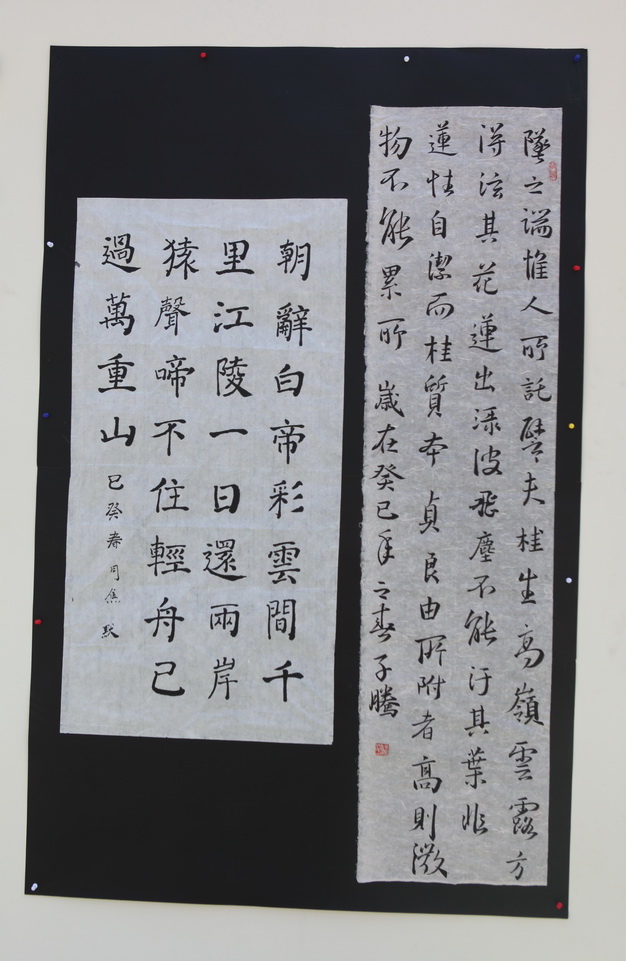 墜之端惟人所託譬夫桂生高嶺雲露方
得泫其花蓮出淥波飛塵不能汙其葉非
蓮性自潔而桂質本貞良由所附者高則微
物不能累所 歲在癸巳年之春子騰
朝辭白帝彩雲間千
里江陵一日還兩岸
猿聲啼不住輕舟已
過萬重山 巳癸春月焦